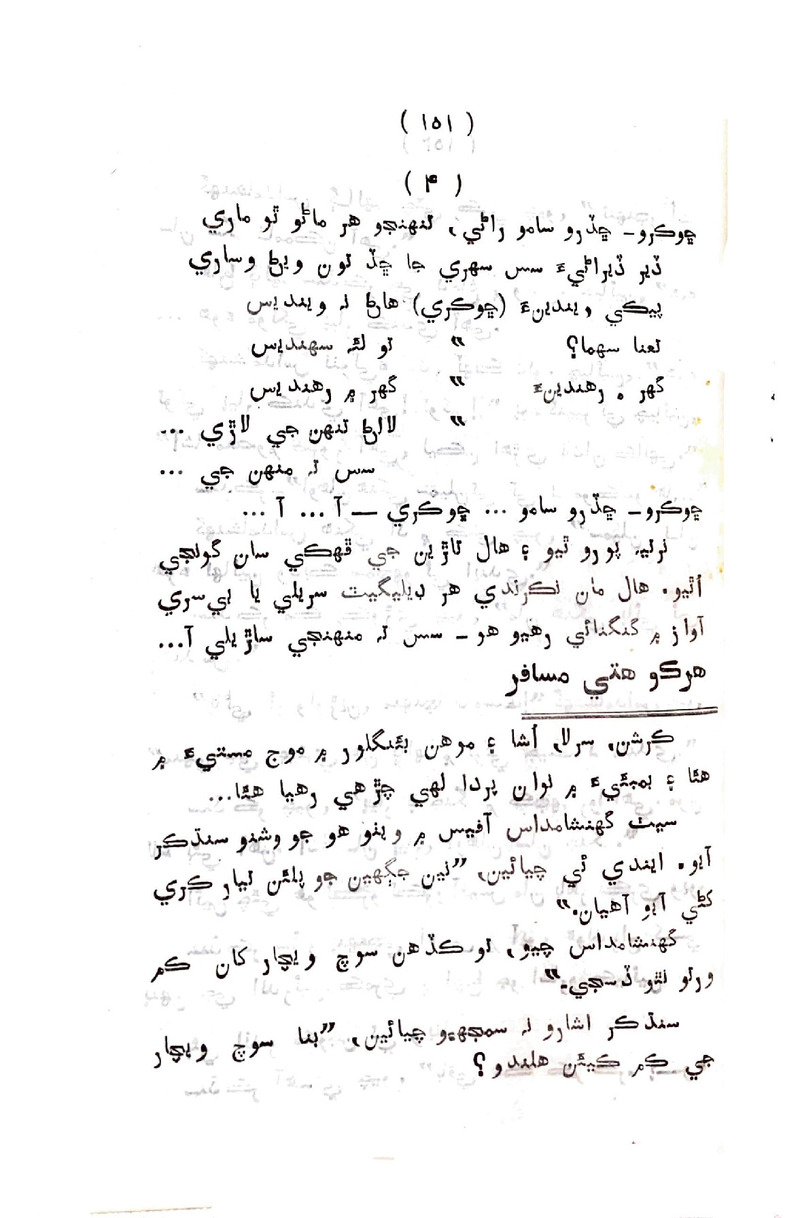 ( ١٥١ )
( ۴ )
ڇوڪرو- ڇڏرو سامو راڻي، تنهنجو هر ماڻو ٿو ماري
ڏير ڏيراڻيءَ سس سهري جا ڇڏ تون ويڻ وساري
پيڪي ويندينءَ (ڇوڪري) هاڻ نہ وينديس
تعنا سهما؟ ” تو لئہ سهنديس
گهر ۾ رهندينءَ ” گهر ۾ رهنديس
” لالڻ تنهن جي لاڙي ...
سس نہ منهن جي ...
ڇوڪرو- ڇڏرو سامو ... ڇوڪري — آ ... آ ...
نرتيہ پورو ٿيو ۽ هال تاڙين جي ڦهڪي سان گونجي
اُٿيو. هال مان نڪرندي هر ڊيليگيٽ سريلي يا بي سري
آواز ۾ گنگنائي رهيو هو - سس نہ منهنجي ساڙيلي آ...
هرڪو هتي مسافر
ڪرشن، سرلا، اُشا ۽ موهن بئنگلور ۾ موج مستيءَ ۾
هئا ۽ بمبئيءَ ۾ نوان پردا لهي چڙهي رهيا هئا...
سيٺ گهنشامداس آفيس ۾ ويٺو هو جو وشنو سنڌڪر
آيو. ايندي ئي چيائين، ”ٽين جڳهين جو پلئن تيار ڪري
کڻي آيو آهيان.“
گهنشامداس چيو، تو ڪڏهن سوچ ويچار کان ڪم
ورتو نٿو ڏسجي.“
سنڌڪر اشارو نہ سمجهيو چيائين، ”بنا سوچ ويچار
جي ڪم ڪيئن هلندو؟